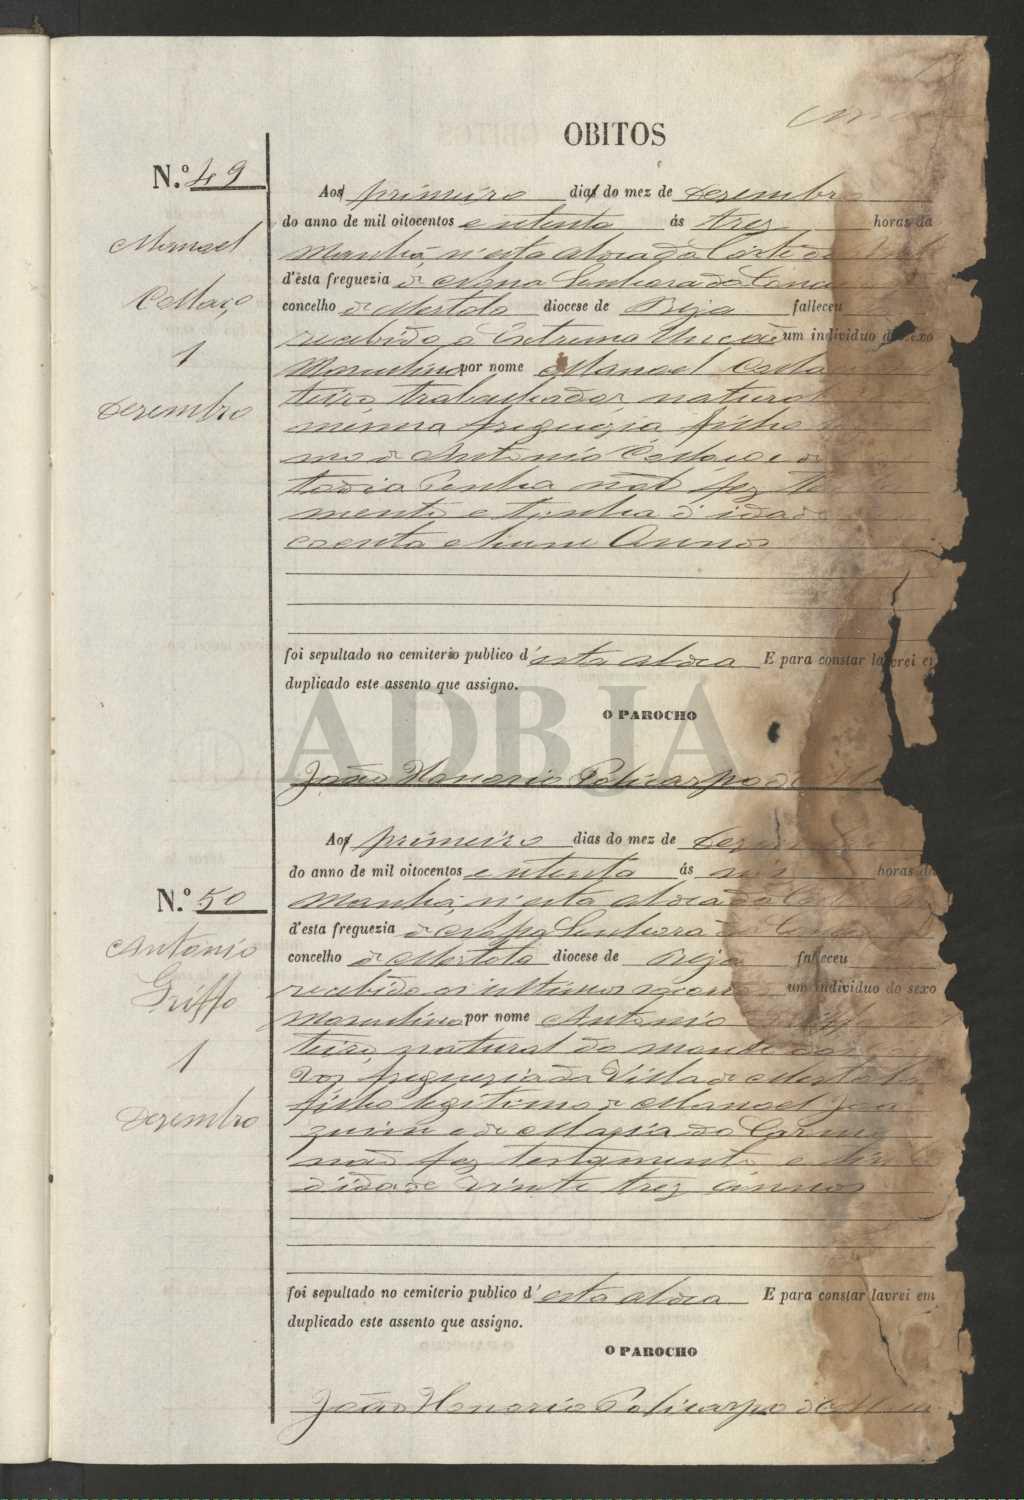 OBITOS
N.º 49
Manoel
Collaço
1
Dezembro
Aos primeiro dia do mez de Dezembro
do anno de mil oitocentos e oitenta ás trez horas da
Manhã n'esta aldea da Corte do
d'esta freguezia de Nossa Senhora da Conceição
concelho de Mertola diocese de Beja falleceu
recebido a Extrema Unção um individuo do sexo
Masculino por nome Manoel Collaço
teiro, trabalhador, natural
mesma freguezia filho
mo de Antonio Collaço e de
não fez
mento e tinha d'idade
coenta e hum Annos
foi sepultado no cemiterio publico d'esta aldea E para constar lavrei em
duplicado este assento que assigno.
O PAROCHO
João Honorio Policarpo d'
ADBJA
N.º 50
Antonio
Griffo
1
Dezembro
Aos primeiro dias do mez de Dezembro
do anno de mil oitocentos e oitenta ás seis horas da
Manhã, n'esta aldea da Corte
d'esta freguezia de Nossa Senhora da Conceição
concelho de Mertola diocese de Beja falleceu
recebido os ultimos um individuo do sexo
Masculino por nome Antonio Griffo
teiro, natural do monte dos
freguezia da Villa de Mertola
filho legitimo de Manoel Joa
quim e de Maria do Carmo
não fez testamento e tinha
d'idade vinte trez annos
foi sepultado no cemiterio publico d'esta aldea E para constar lavrei em
duplicado este assento que assigno.
O PAROCHO
João Honorio Policarpo d'